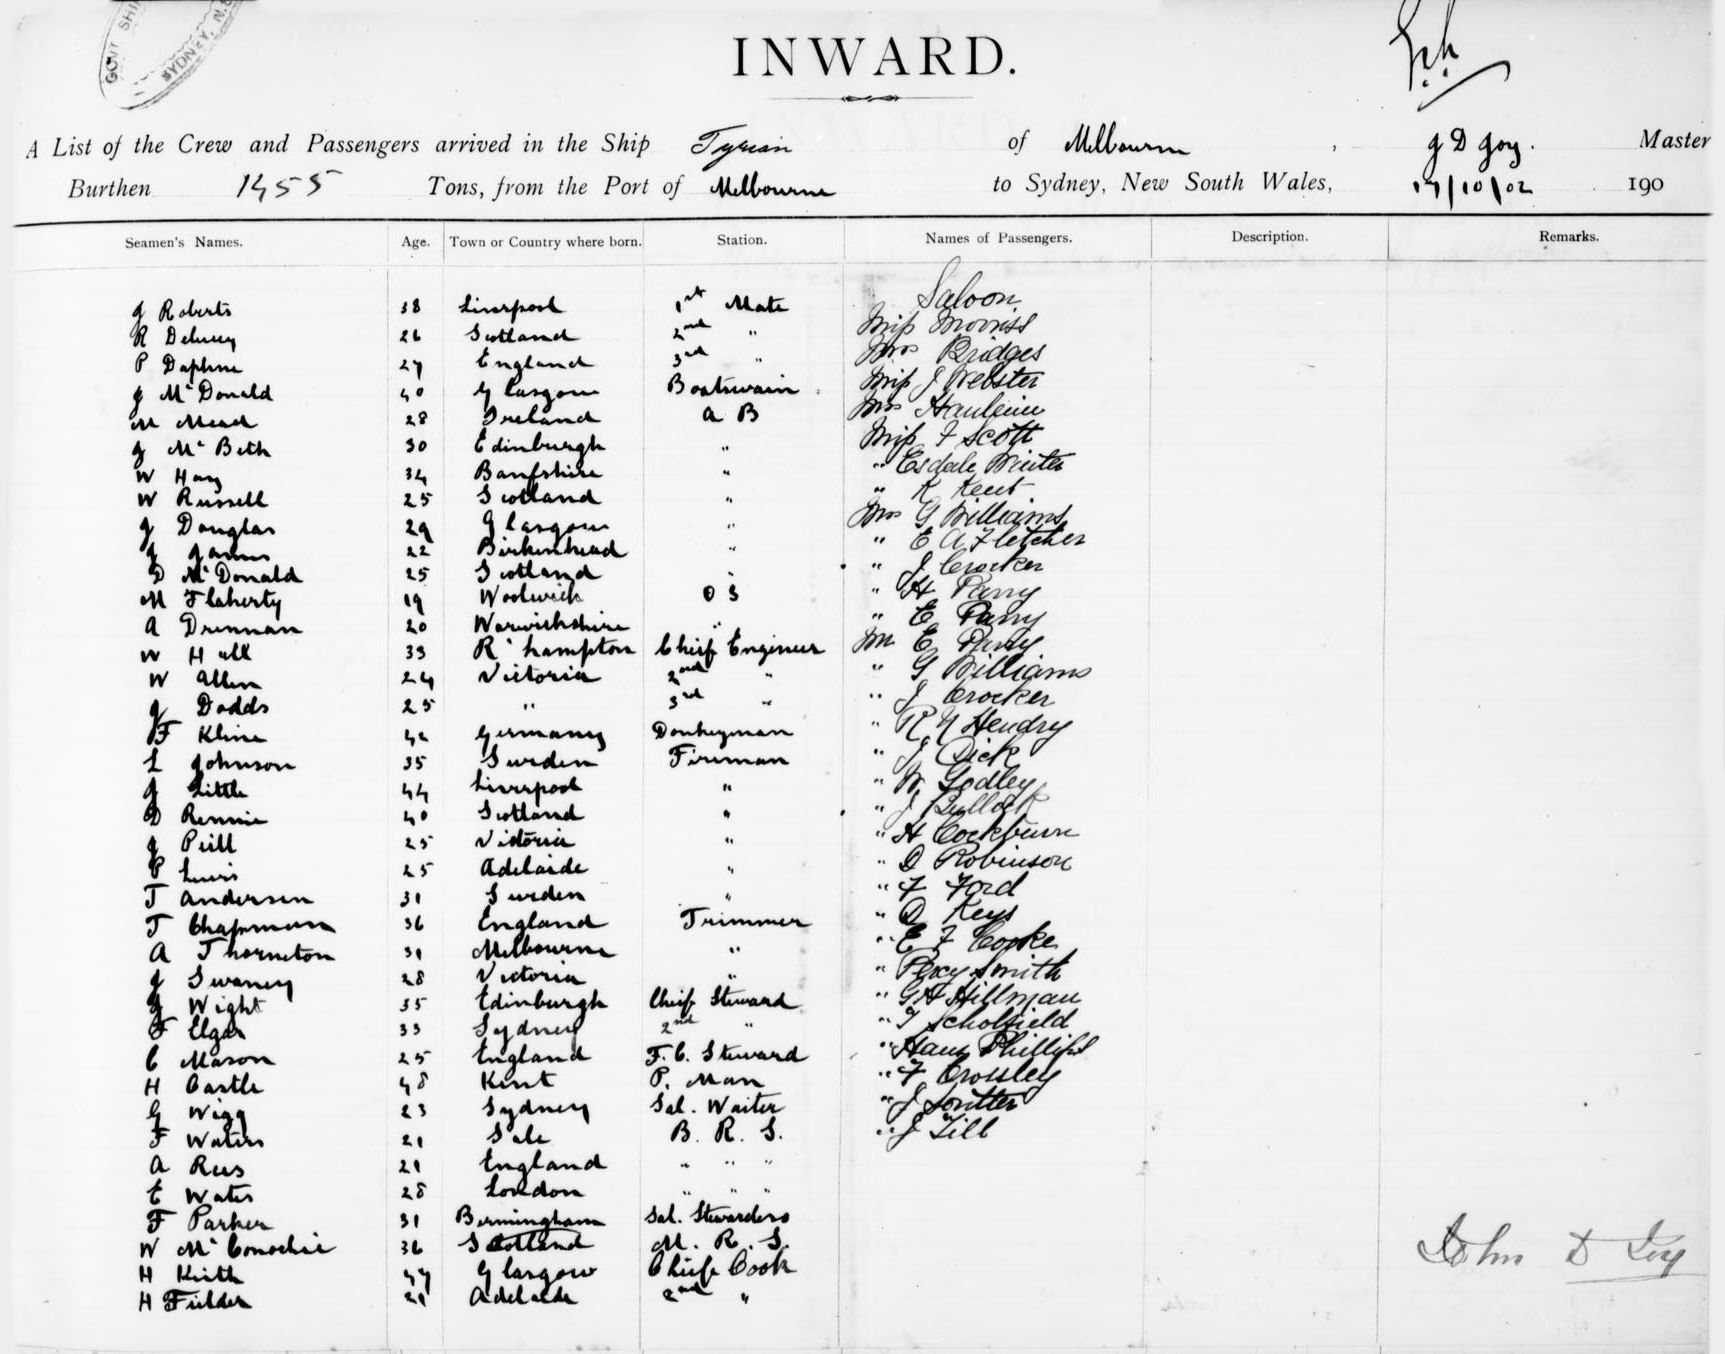 GOVT SHI
SYDNEY, N.S
INWARD.
A List of the Crew and Passengers arrived in the Ship Tyrian of Melbourne, J D Joy. Master
Burthen 1455 Tons, from the Port of Melbourne to Sydney, New South Wales, 17/10/02 190
Seamen's Names. Age. Town or Country where born. Station. Names of Passengers. Description. Remarks.
Saloon
J Roberts 38 Liverpool 1st Mate Miss Morriss
R Delucy 26 Scotland 2nd " Mrs Bridges
P Daphne 27 England 3rd " Miss J Webster
J McDonald 40 Glasgow Boatswain Mrs
M Mead 28 Ireland A B Miss F Scott
J McBeth 30 Edinburgh " " Esdale Winter
W Hay 34 Banfshire " " K Kent
W Russell 25 Scotland " Mrs G Williams
J Douglas 29 Glasgow " " E A Fletcher
J James 22 Birkenhead " " J Crocker
D McDonald 25 Scotland " " H Parry
M Flaherty 19 Woolwich O S " E Parry
A Drennan 20 Warwickshire " Mr E Parry
W Hall 33 R'hampton Chief Engineer " G Williams
W Allen 24 Victoria 2nd " " J Crocker
J Dodds 25 " 3rd " " R N Hendry
F Kline 42 Germany Donkeyman " J Dick
L Johnson 35 Sweden Fireman " W Godley
J Little 44 Liverpool " " J Bullock
D Rennie 40 Scotland " " H Cockburn
J Peill 25 Victoria " " D Robinson
P Lewis 25 Adelaide " " F Ford
T Andersen 31 Sweden " " D Keys
T Chapman 36 England Trimmer " E F Cooke
A Thornton 31 Melbourne " " Percy Smith
J Swaney 28 Victoria " " G H Hillman
J Wight 35 Edinburgh Chief Steward " T Scholfield
F Elgar 33 Sydney 2nd " " Hans Phillips
C Mason 25 England F. C. Steward " F Crossley
H Castle 48 Kent P. Man " J Soutter
G Wigg 23 Sydney Sal. Waiter " J Till
F Waters 21 Sale B. R. S.
A Rees 21 England " " "
E Wates 28 London " " "
F Parker 31 Birmingham Sal. Stewardess
W McConochie 36 Scotland M. R. S.
H Keith 47 Glasgow Chief Cook
H Fielder 21 Adelaide 2nd "
John D Joy